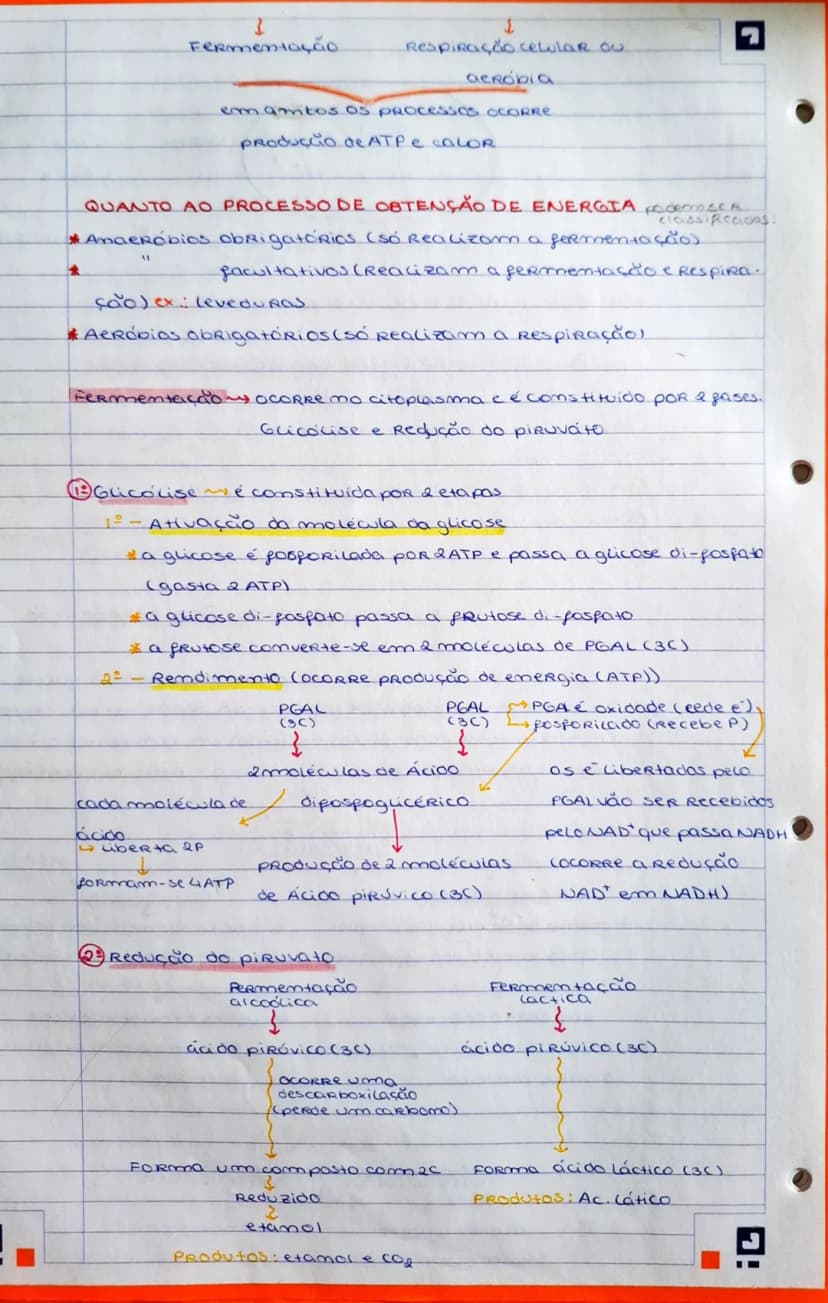 Fermentação
Respiração celular ou
aeróbia
em ambos os processos ocorre
produção de ATP e calor
QUANTO AO PROCESSO DE OBTENÇÃO DE ENERGIA podemos ser
classificados:
* Anaeróbios obrigatórios (só realizam a fermentação)
* " facultativos (realizam a fermentação e respira-
ção) ex.: leveduras
* Aeróbios obrigatórios (só realizam a respiração)
Fermentação → ocorre no citoplasma e é constituído por 2 fases.
Glicólise e Redução do piruvato
1º Glicólise ~ é constituída por 2 etapas
1º - Ativação da molécula da glicose
* a glicose é fosforilada por 2 ATP e passa a glicose di-fosfato
(gasta 2 ATP)
* a glicose di-fosfato passa a frutose di-fosfato
* a frutose converte-se em 2 moléculas de PGAL (3C)
2º - Rendimento (ocorre produção de energia (ATP))
PGAL
(3C)
PGAL
(3C)
→ PGA é oxidade (cede e⁻)
→ fosforilado (recebe P)
2 moléculas de Ácido
difosfoglicérico
os e⁻ libertados pelo
PGAL vão ser recebidos
pelo NAD⁺ que passa NADH
(ocorre a redução
NAD⁺ em NADH)
cada molécula de
ácido
↳ liberta 2P
↓
formam-se 4 ATP
produção de 2 moléculas
de Ácido pirúvico (3C)
2º Redução do piruvato
Fermentação
alcoólica
ácido pirúvico (3C)
ocorre uma
descarboxilação
(perde um carbono)
Forma um composto com 2C
Reduzido
etanol
Produtos: etanol e CO₂
Fermentação
láctica
ácido pirúvico (3C)
Forma ácido láctico (3C)
Produtos: Ac. lático